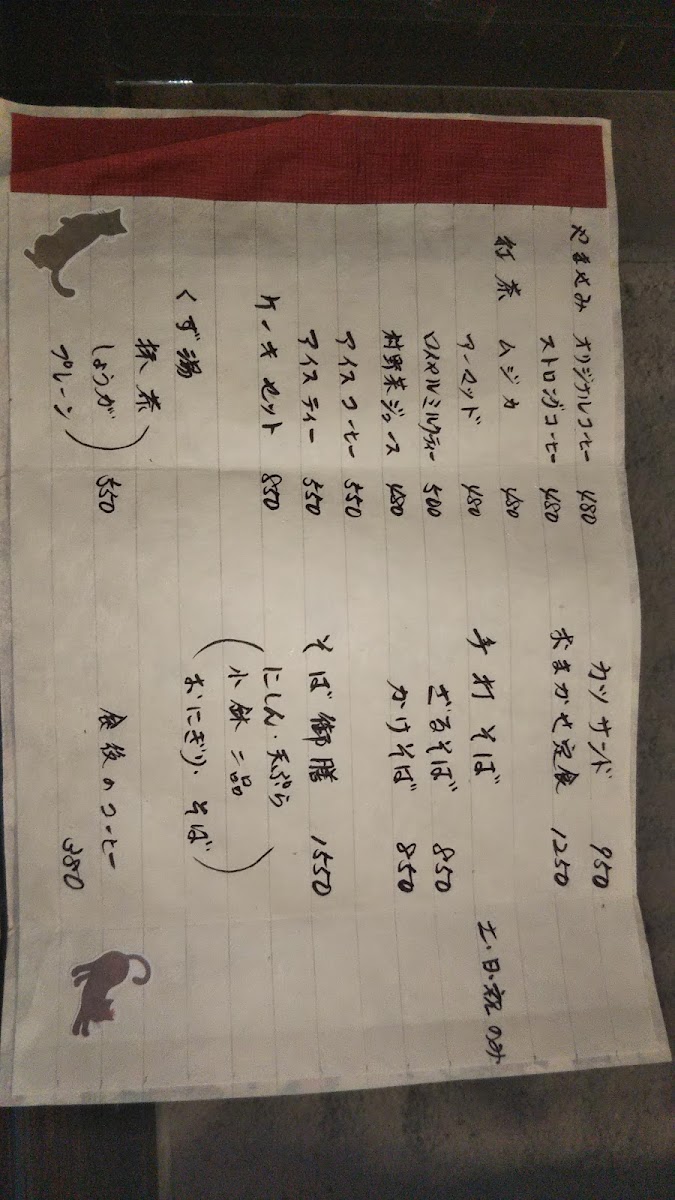 やませみ オリジナルコーヒー 480
ストロングコーヒー 480
紅茶 ムジカ 480
アーマッド 480
ロイヤルミルクティー 500
村野菜ジュース 480
アイスコーヒー 550
アイスティー 550
ケーキセット 850
くず湯
抹茶
しょうが 550
プレーン)
カツサンド 950
おまかせ定食 1250
手打そば 土・日・祝のみ
ざるそば 850
かけそば 850
そば御膳 1550
(にしん・天ぷら
小鉢二品
おにぎり・そば)
食後のコーヒー
380